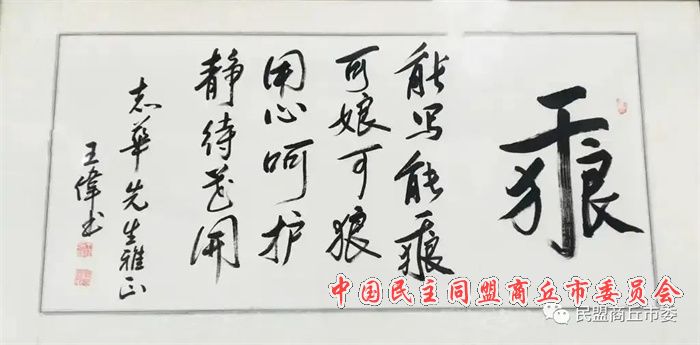 能写能
可娘可狼
用心呵护
静待花開
志華先生雅正
王偉书
中国民主同盟商丘市委员会
民盟商丘市委